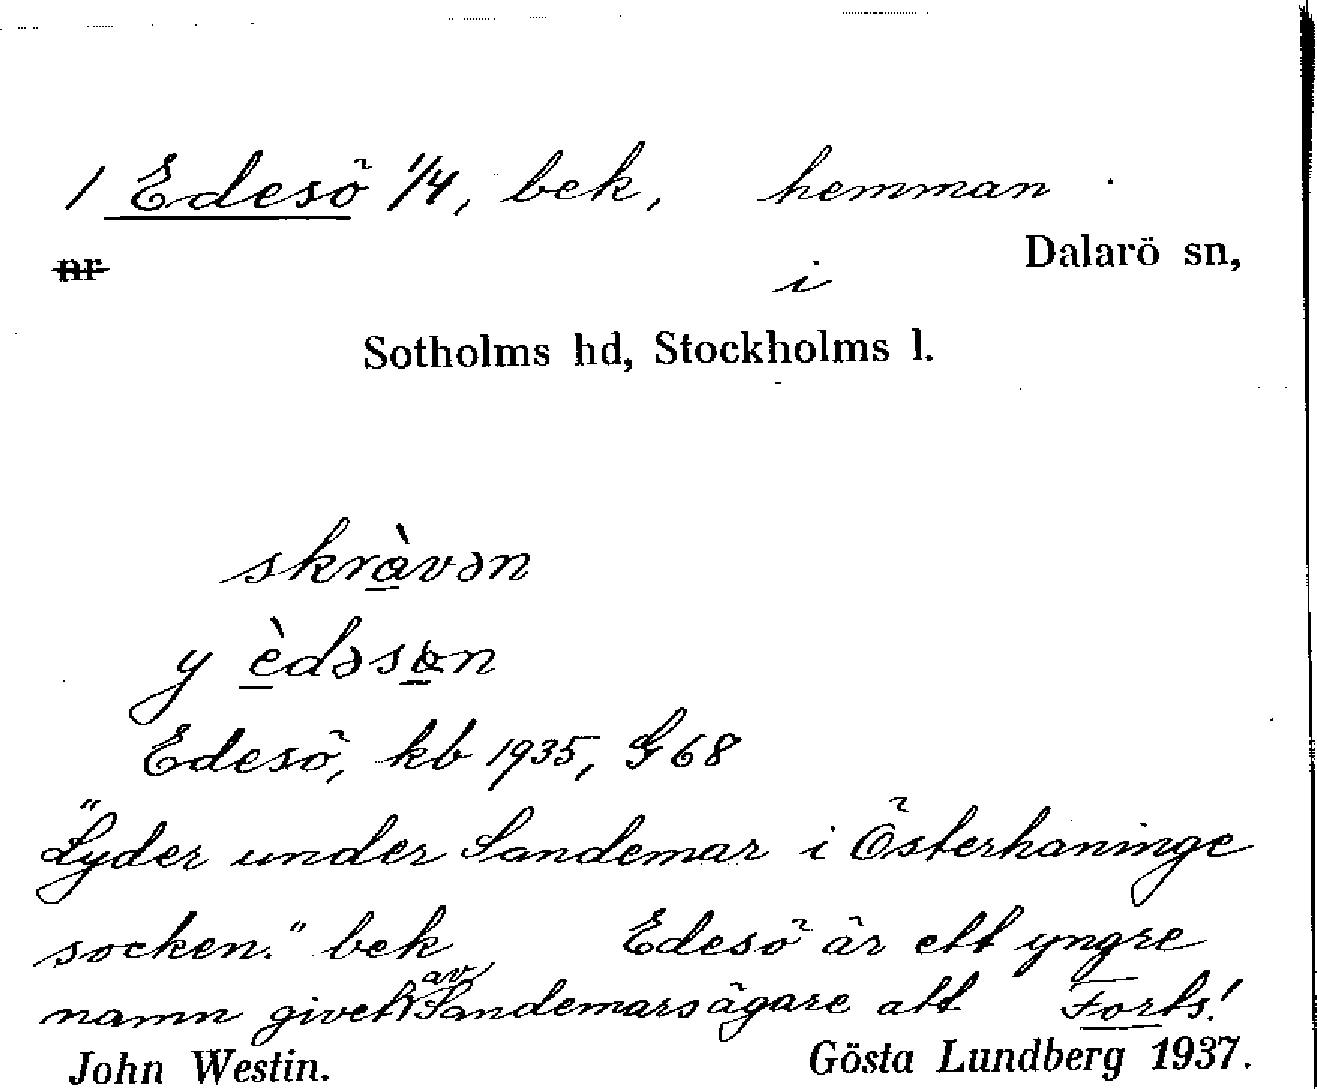 1 Edesö 1/4, bek, hemman
nr i Dalarö sn,
Sotholms hd, Stockholms l.
skràvən
y èdəsøn
Edesö, kb 1935, G 68
"Lyder under Sandemar i Österhaninge
socken." bek Edesö är ett yngre
namn givet av Sandemarsägare att Forts!
John Westin. Gösta Lundberg 1937.